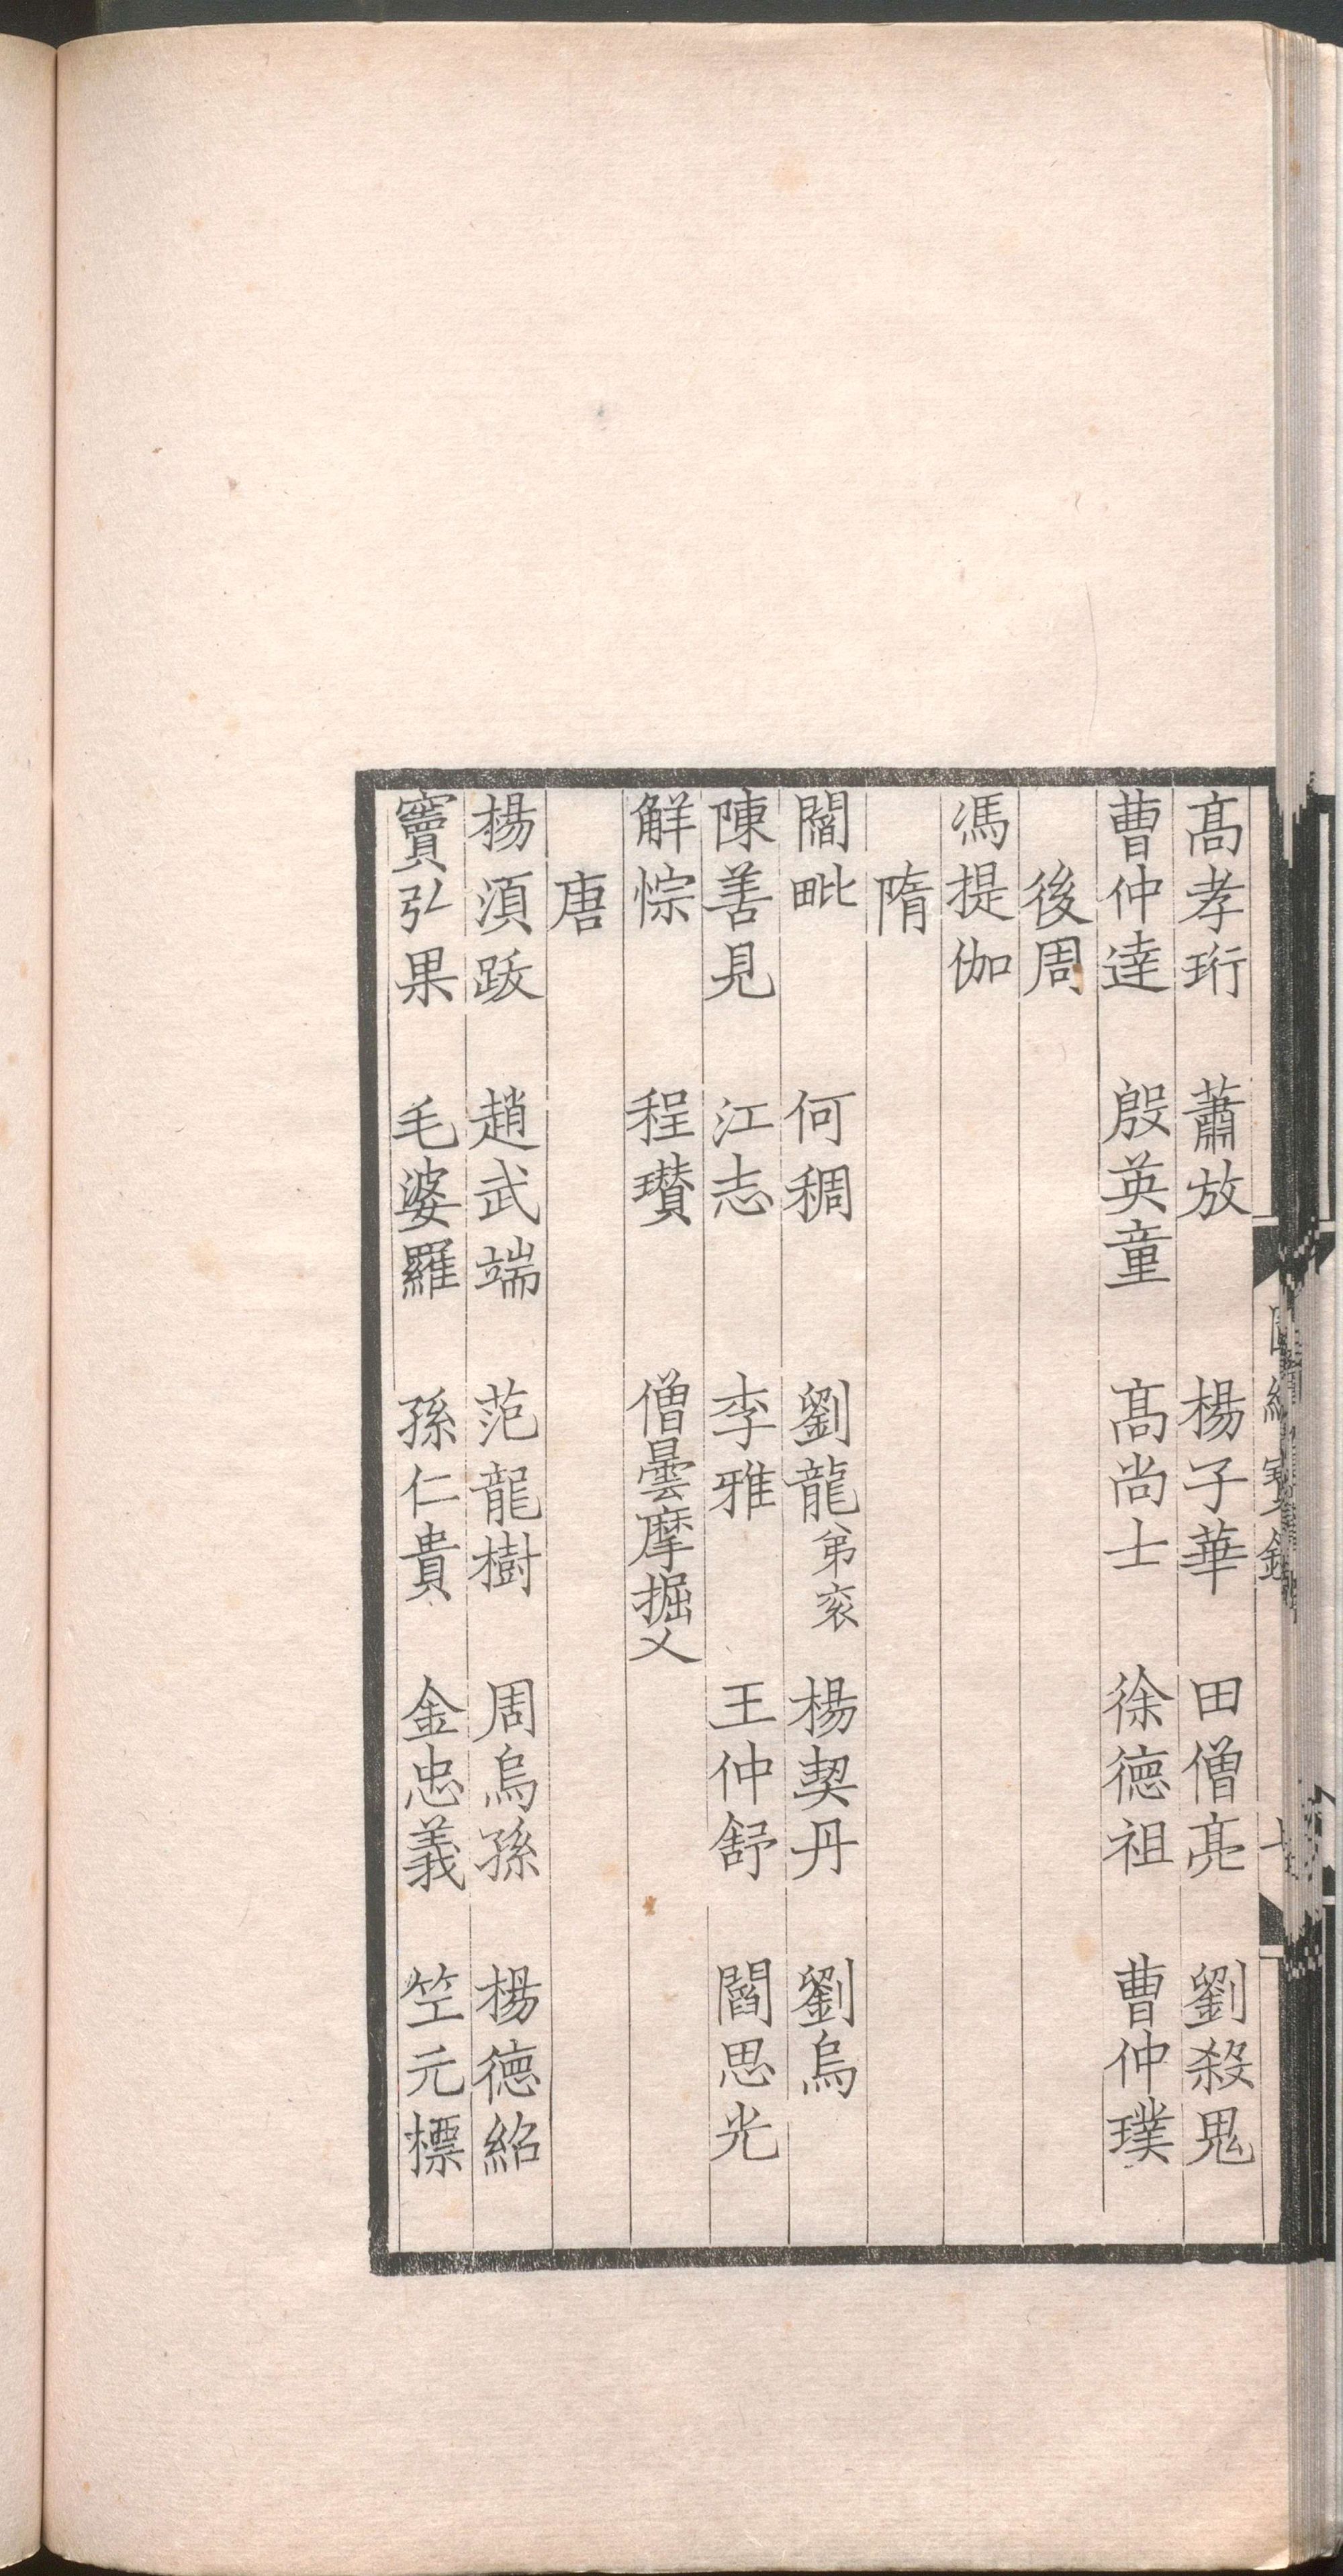 髙孝珩　蕭放　楊子華　田僧亮　劉殺鬼
曹仲達　殷英童　髙尚士　徐德祖　曹仲璞
後周
馮提伽
隋
閻毗　何稠　劉龍弟衮　楊契丹　劉烏
陳善見　江志　李雅　王仲舒　閻思光
解悰　程瓚　僧曇摩掘乂
唐
楊湏跋　趙武端　范龍樹　周烏孫　楊德紹
竇弘果　毛婆羅　孫仁貴　金忠義　笁元標